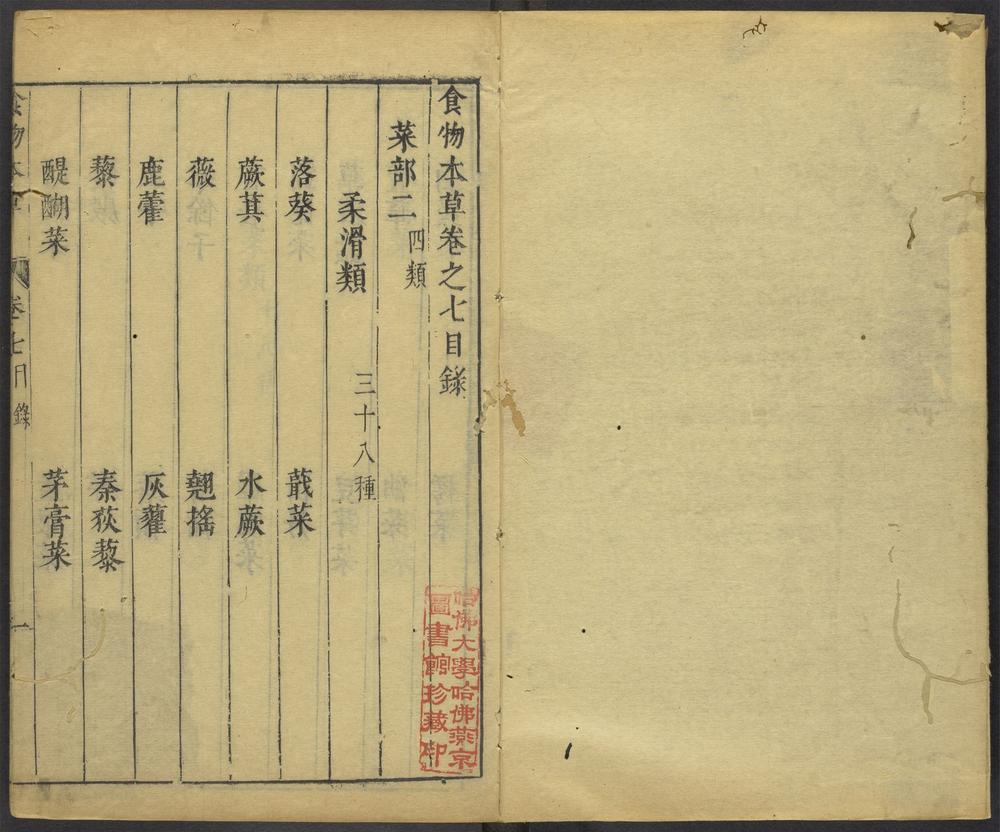 食物本草卷之七目錄
菜部二 四類
柔滑類 三十八種
落葵 蕺菜
蕨萁 水蕨
薇 翹搖
鹿藿 灰藋
藜 秦荻藜
醍醐菜 茅膏菜
食物本草 卷七目錄 一
哈佛大學哈佛燕京
圖書館珍藏印